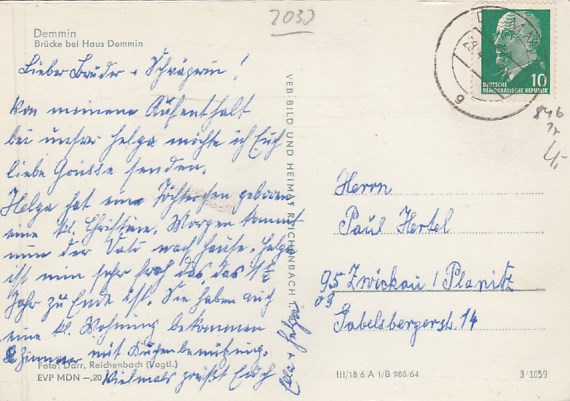 2030
Demmin
Brücke bei Haus Demmin
Lieber Bruder + Schwägerin!
Von meinem Aufenthalt
bei unsrer Helga möchte ich Euch
liebe Grüsse senden.
Helga hat ein Töchterchen geboren
eine kl. Christine. Morgen kommt
nun der Vati nach hause. Helga
ist nun sehr froh das das 1½
Jahr zu Ende ist. Sie haben auch
eine kl. Wohnung bekommen
2 Zimmer mit Küchenbenützung.
Vielmals grüßt Euch
Foto: Darr, Reichenbach (Vogtl.)
EVP MDN –,20
VEB BILD UND HEIMAT REICHENBACH I. V.
DEUTSCHE
DEMOKRATISCHE REPUBLIK
10
g
846
4,-
Herrn
Paul Hertel
95 Zwickau / Planitz
Gabelsbergerstr. 14
III/18/6 A 1/B 966/64
3 1059